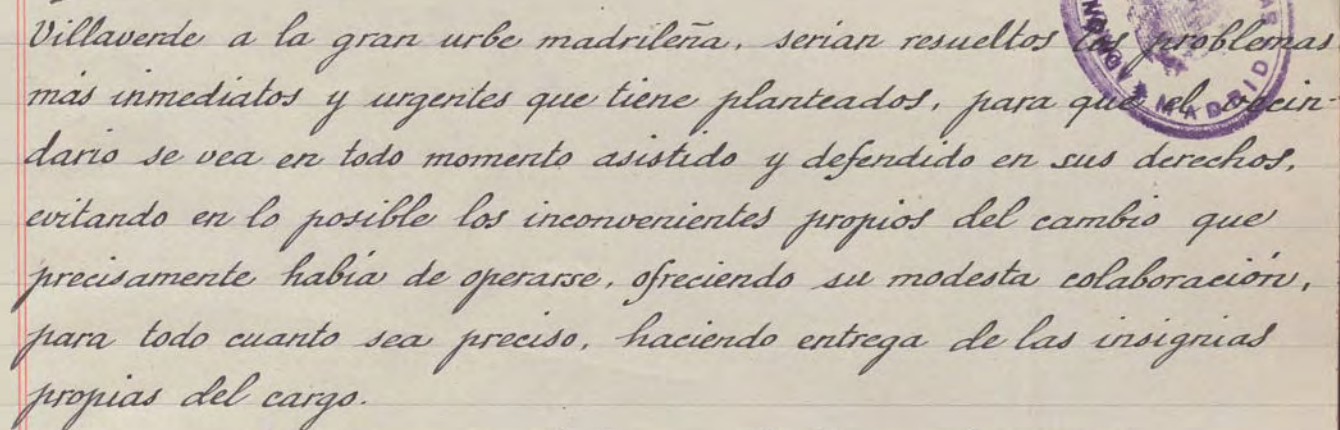 Villaverde a la gran urbe madrileña, serian resueltos los problemas
más inmediatos y urgentes que tiene planteados, para que el vecin-
dario se vea en todo momento asistido y defendido en sus derechos,
evitando en lo posible los inconvenientes propios del cambio que
precisamente había de operarse, ofreciendo su modesta colaboración,
para todo cuanto sea preciso, haciendo entrega de las insignias
propias del cargo.
MADRID